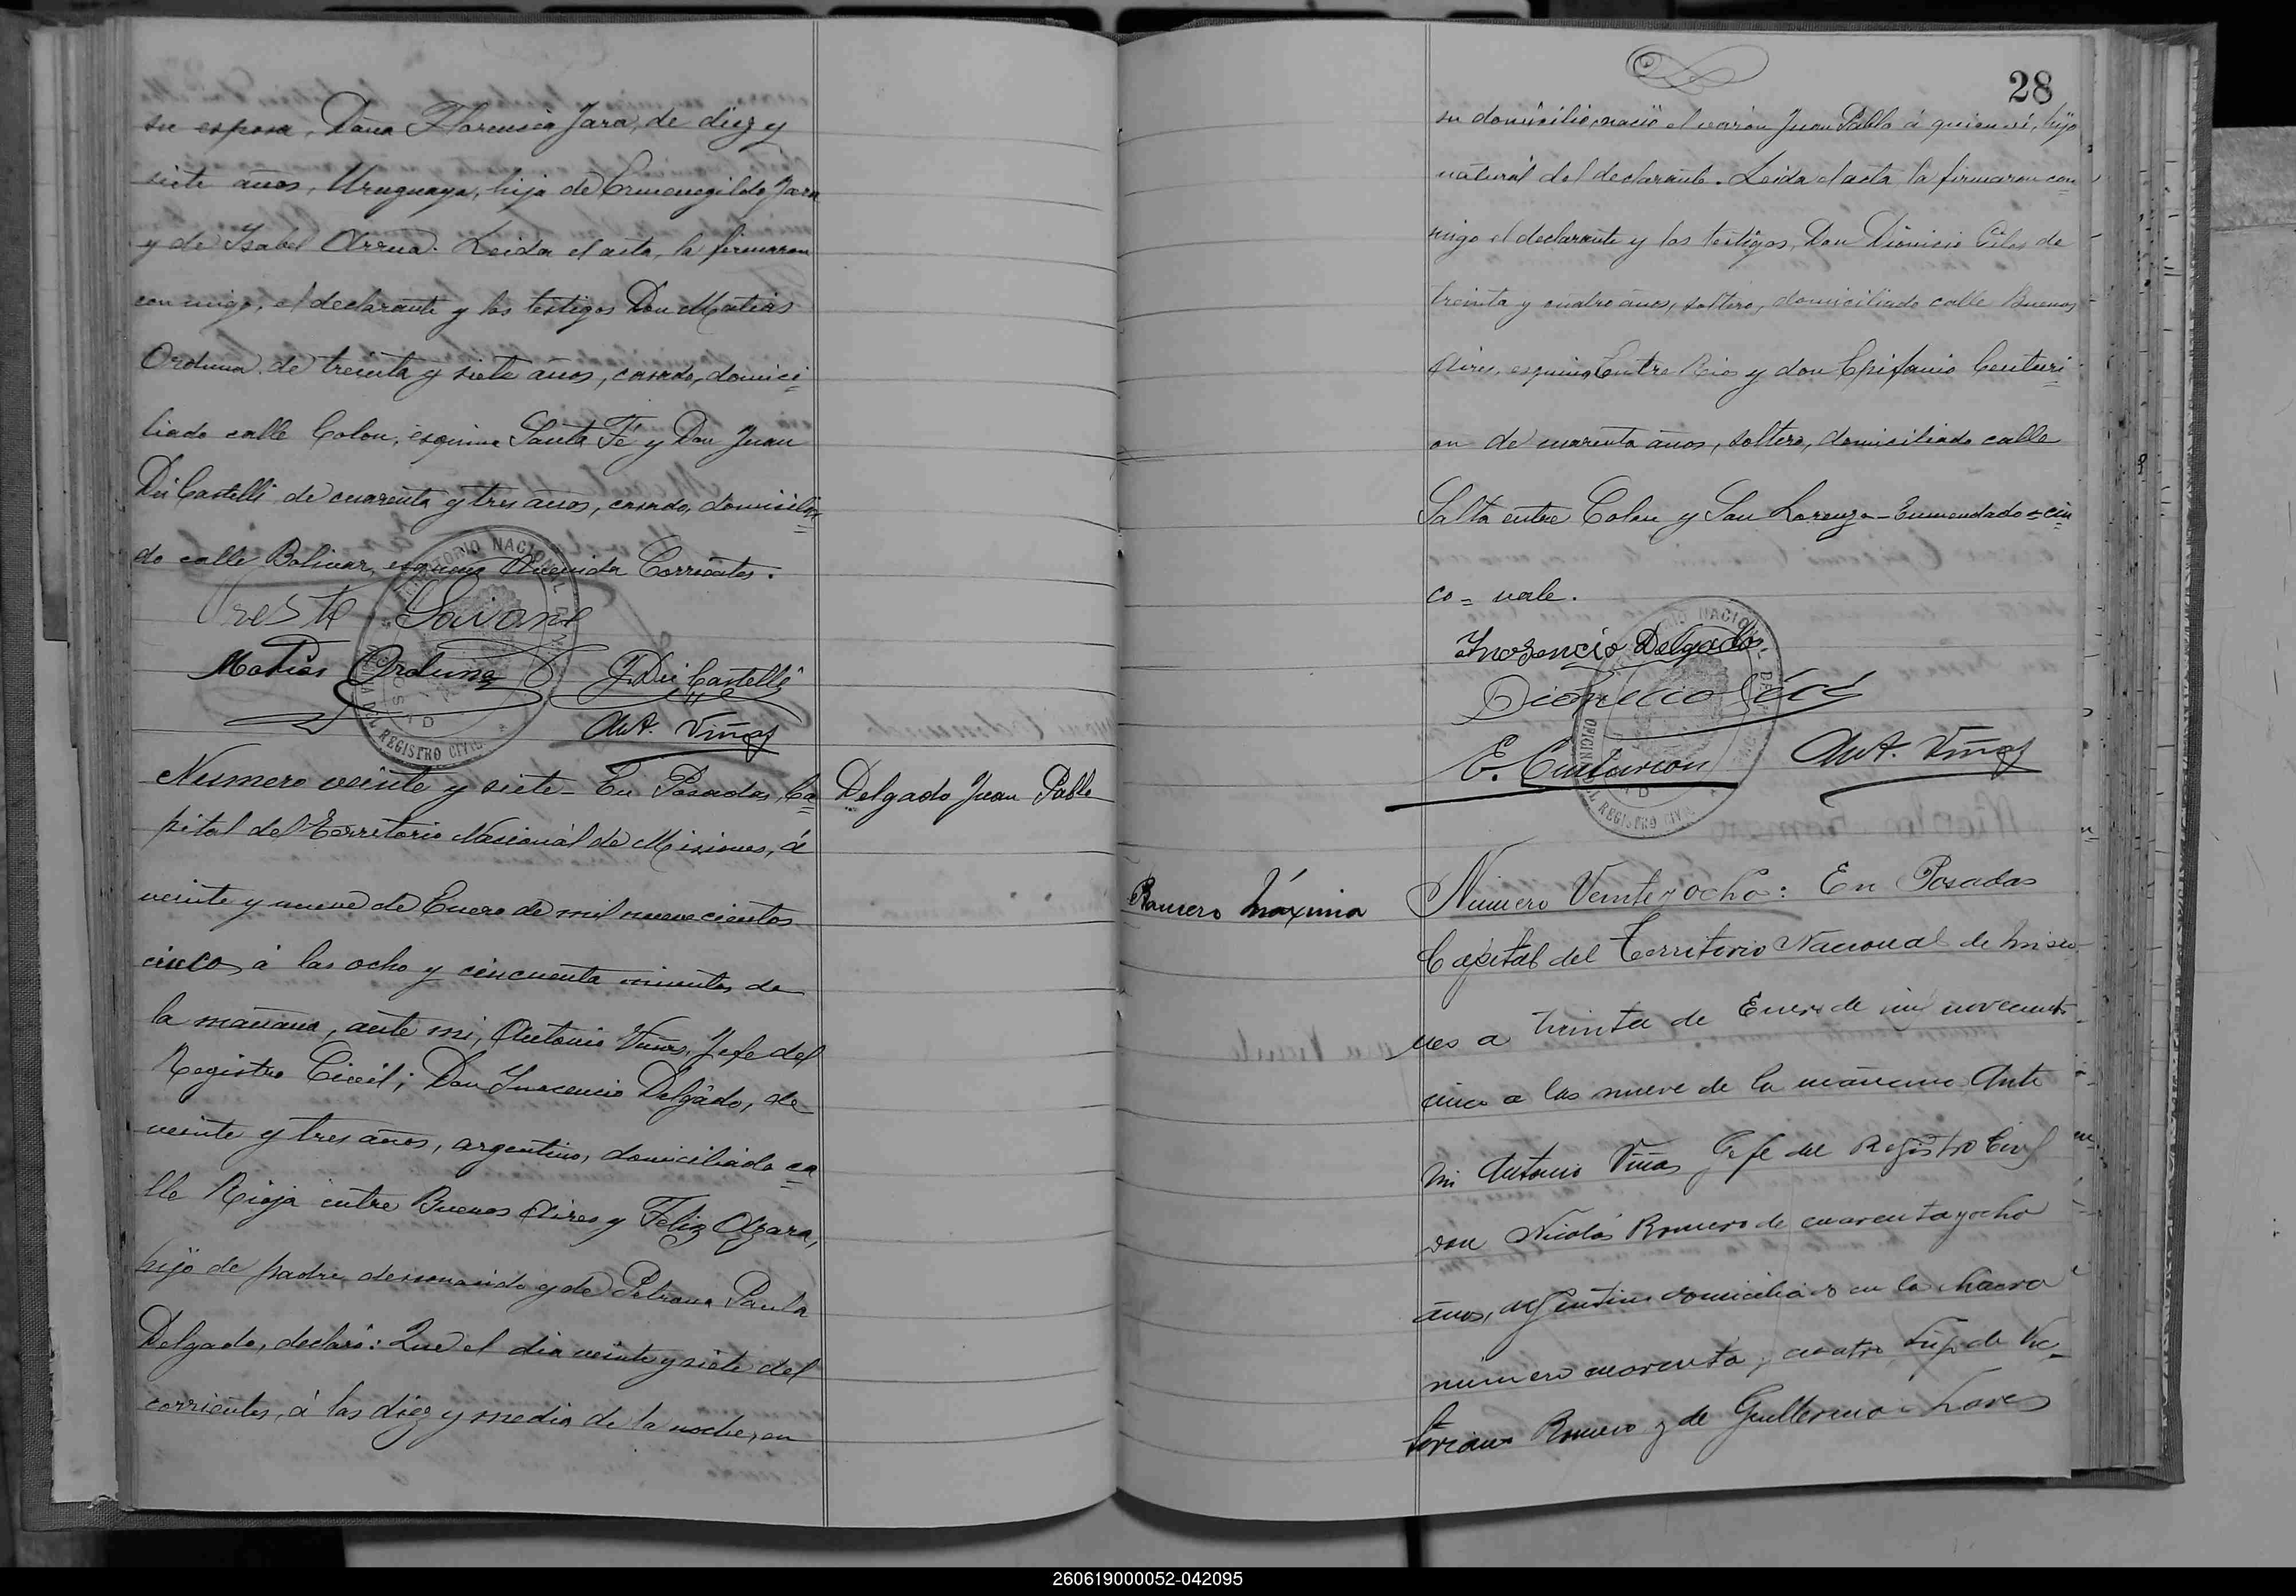 su esposa, Doña Florencia Jara, de diez y
siete años, Uruguaya, hija de Ermenegildo Jara
y de Isabel Arrua. Leida el acta, la firmaron
con migo, el declarante y los testigos Don Matias
Orduna de treinta y siete años, casado, domici=
liado calle Colon, esquina Santa Fé y Don Juan
Dei Castelli de cuarenta y tres años, casado, domicilia=
do calle Bolivar, esquina Avenida Corrientes.
Oreste Savone
Matias Orduna J Dei Castelli
Ant. Viñas
Numero veinte y siete - En Posadas, Ca=
Delgado Juan Pablo
pital del Territorio Nacional de Misiones, á
veinte y nueve de Enero de mil nuevecientos
cinco, á las ocho y cincuenta minutos de
la mañana, ante mi, Antonio Viñas, Jefe del
Registro Civil; Don Inocencio Delgado, de
veinte y tres años, argentino, domiciliado ca=
lle Rioja entre Buenos Aires y Feliz Azara,
hijo de padre desconocido y de Petrona Paula
Delgado, declaró: Que el dia veinte y siete del
corrientes, á las diez y media de la noche, en
28
su domicilio, nació el varon Juan Pablo á quien ví, hijo
natural del declarante. Leida el acta la firmaron con
migo el declarante y los testigos, Don Dionicio de
treinta y cuatro años, soltero, domiciliado calle Buenos
Aires, esquina Entre Rios y don Epifanio Centuri=
on de cuarenta años, soltero, domisiliado calle
Salta entre Colon y San Lorenzo - Enmendado = cin=
co = vale.
Inosencio Delgado
Dionicio
E. Centurion Ant. Viñas
TERRITORIO NACIONAL DE MISIONES
OFICINA DEL REGISTRO CIVIL
Romero Máxima
Número Veinte y ocho: En Posadas
Capital del Territorio Nacional de Misio-
nes a treinta de Enero de mil novecientos
cinco a las nueve de la mañana Ante
mi Antonio Viñas Gefe del Registro Civil
don Nicolás Romero de cuarenta y ocho
años, argentino domiciliado en la chacra
número cuarenta y cuatro hijo de Vic-
toriano Romero y de Guillerma
260619000052-042095